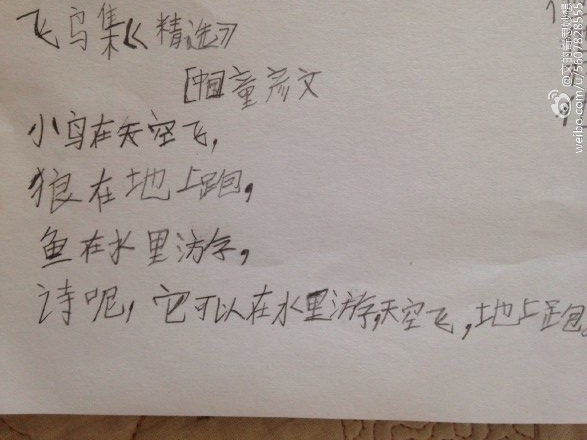 飞鸟集《精选》
[中国]童彦文
小鸟在天空飞,
狼在地上跑,
鱼在水里游,
诗呢,它可以在水里游,天空飞,地上跑。
weibo.com/u/5607828555